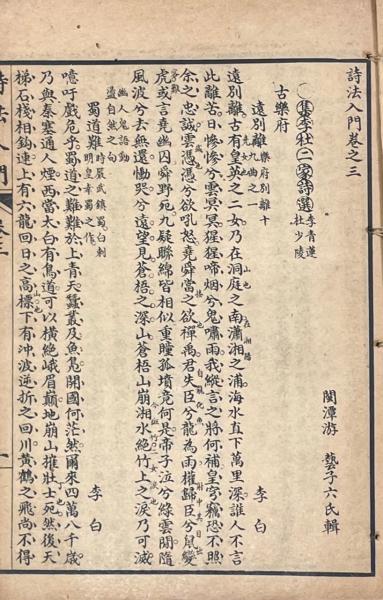 詩法入門卷之三
閩潭游 藝子六氏輯
集李杜二家詩選 李青蓮 杜少陵
古樂府
遠別離 樂府別離十九曲之一 李 白
遠別離古有皇英之二女乃在洞庭之南瀟湘之浦海水直下萬里深誰人不言
此離苦日慘慘兮雲冥冥猩猩啼烟兮鬼嘯雨我縱言之將何補皇穹竊恐不照
余之忠誠雲憑憑兮欲吼怒堯舜當之欲禪禹君失臣兮龍為魚權歸臣兮鼠變
虎或言堯幽囚舜野死九疑聯綿皆相似重瞳孤墳竟何是帝子泣兮綠雲間隨
風波兮去無還慟哭兮遠望見蒼梧之深山蒼梧山崩湘水絕竹上之淚乃可滅
幽人鬼語動
盪自然之句
蜀道難 嚴武鎮蜀白刺 明皇幸蜀之作 李 白
噫吁戲危乎蜀道之難難於上青天蠶叢及魚鳧開國何茫然爾來四萬八千歲
乃與秦塞通人煙西當太白有鳥道可以橫絕峨眉巔地崩山摧壯士死然後天
梯石棧相鈎連上有六龍回日之高標下有冲波逆折之回川黃鶴之飛尚不得
詩法入門 卷三 一